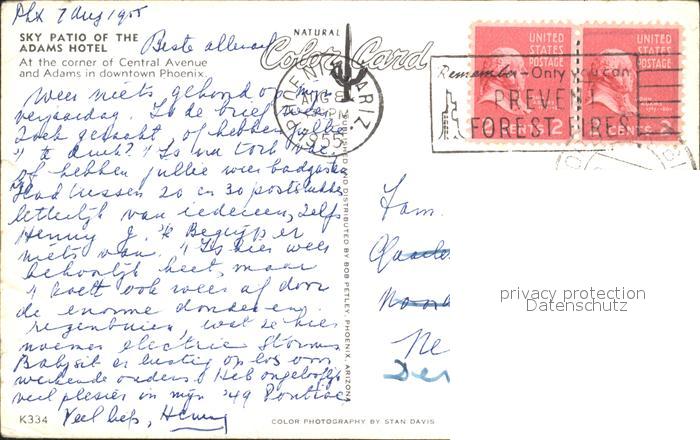 Phx 7 Aug 1955
SKY PATIO OF THE
ADAMS HOTEL
At the corner of Central Avenue
and Adams in downtown Phoenix.
NATURAL
Color Card
Beste allemaal
Weer niets gehoord op mijn
verjaardag. Is de brief weer
zoek geraakt of hebben jullie
't te druk? Is nu toch
of hebben jullie weer badgasten
Had tussen 20 en 30 post
letterlijk van iedereen, zelfs
Henny J. 'k Begrijp er
niets van. 't Is hier weer
behoorlijk heet, maar
't koelt ook weer af door
de enorme donder en
regenbuien, wat ze hier
noemen electric storms
Babysit er lustig op los voor
werkende ouders & Heb ongelooflijk
veel plezier in mijn '49 Pontiac.
Veel liefs, Henny
K334
PUBLISHED AND DISTRIBUTED BY BOB PETLEY, PHOENIX, ARIZONA
COLOR PHOTOGRAPHY BY STAN DAVIS
PHOENIX, ARIZ.
AUG 8
PM
1955
Remember - Only you can
PREVENT
FOREST FIRES
UNITED
STATES
POSTAGE
CENTS 2
UNITED
STATES
POSTAGE
CENTS 2
Fam.
Ne
Den
privacy protection
Datenschutz